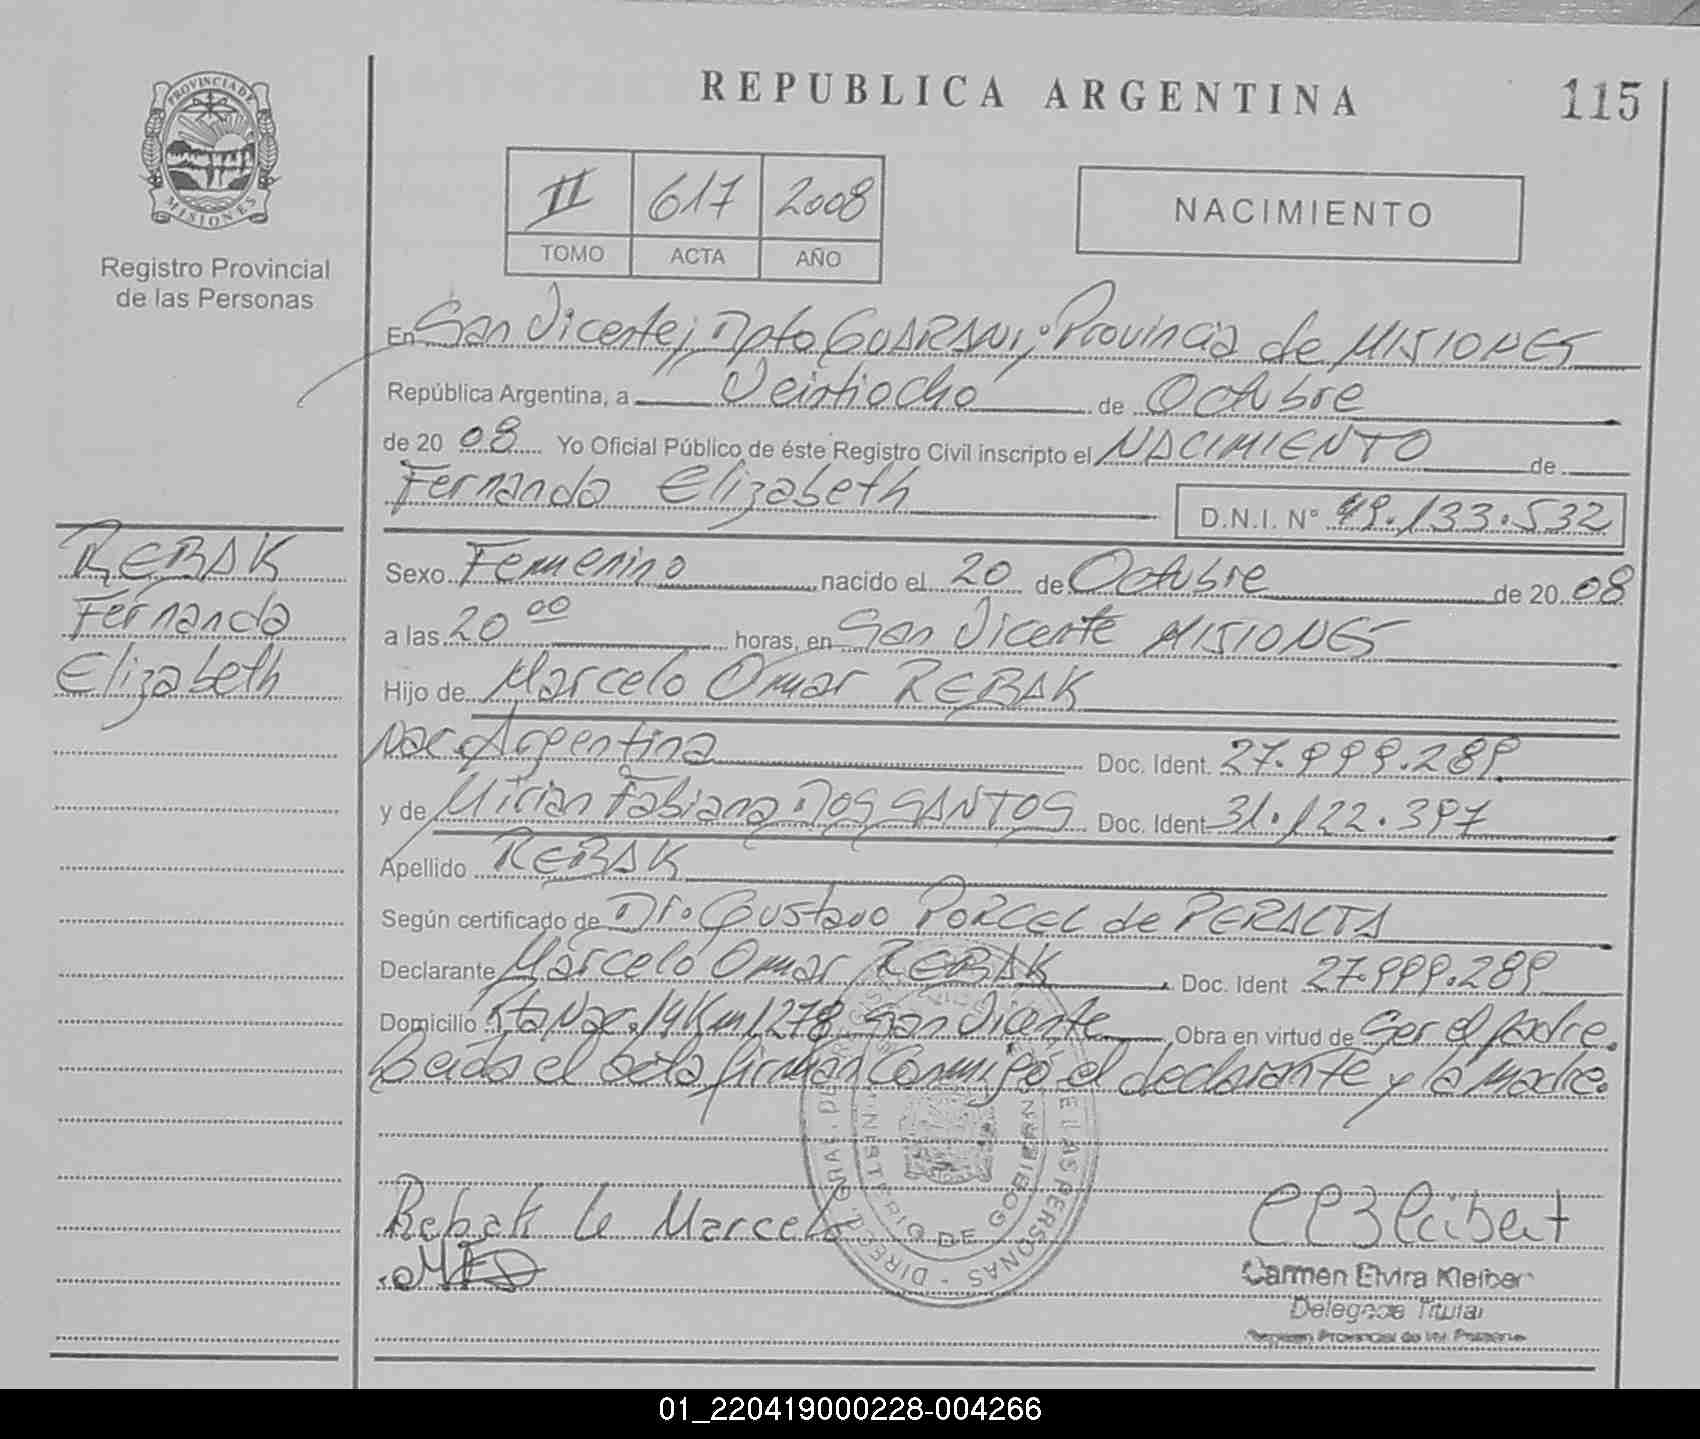 REPUBLICA ARGENTINA
115
PROVINCIA DE MISIONES
Registro Provincial
de las Personas
II 617 2008
TOMO ACTA AÑO
NACIMIENTO
En San Vicente, Dpto GUARANI, Provincia de MISIONES
República Argentina, a Veintiocho de Octubre
de 2008 Yo Oficial Público de éste Registro Civil inscripto el NACIMIENTO de
Fernanda Elizabeth
D.N.I. N° 49.133.532
REBAK
Fernanda
Elizabeth
Sexo Femenino nacido el 20 de Octubre de 2008
a las 20 00 horas, en San Vicente MISIONES
Hijo de Marcelo Omar REBAK
Nac. Argentina Doc. Ident. 27.999.289
y de Mirian Fabiana DOS SANTOS Doc. Ident 31.122.397
Apellido REBAK
Según certificado de Dr. Gustavo PORCEL de PERALTA
Declarante Marcelo Omar REBAK Doc. Ident 27.999.289
Domicilio Rta Nac. 14 Km 1278 San Vicente Obra en virtud de Ser el padre.
Leida el acta firman Conmigo el declarante y la madre.
Rebak Marcelo
DIREC. GRAL. DE LAS PERSONAS
MINISTERIO DE GOBIERNO
Carmen Elvira Kleiber
Delegada Titular
Registro Provincial de las Personas
01_220419000228-004266